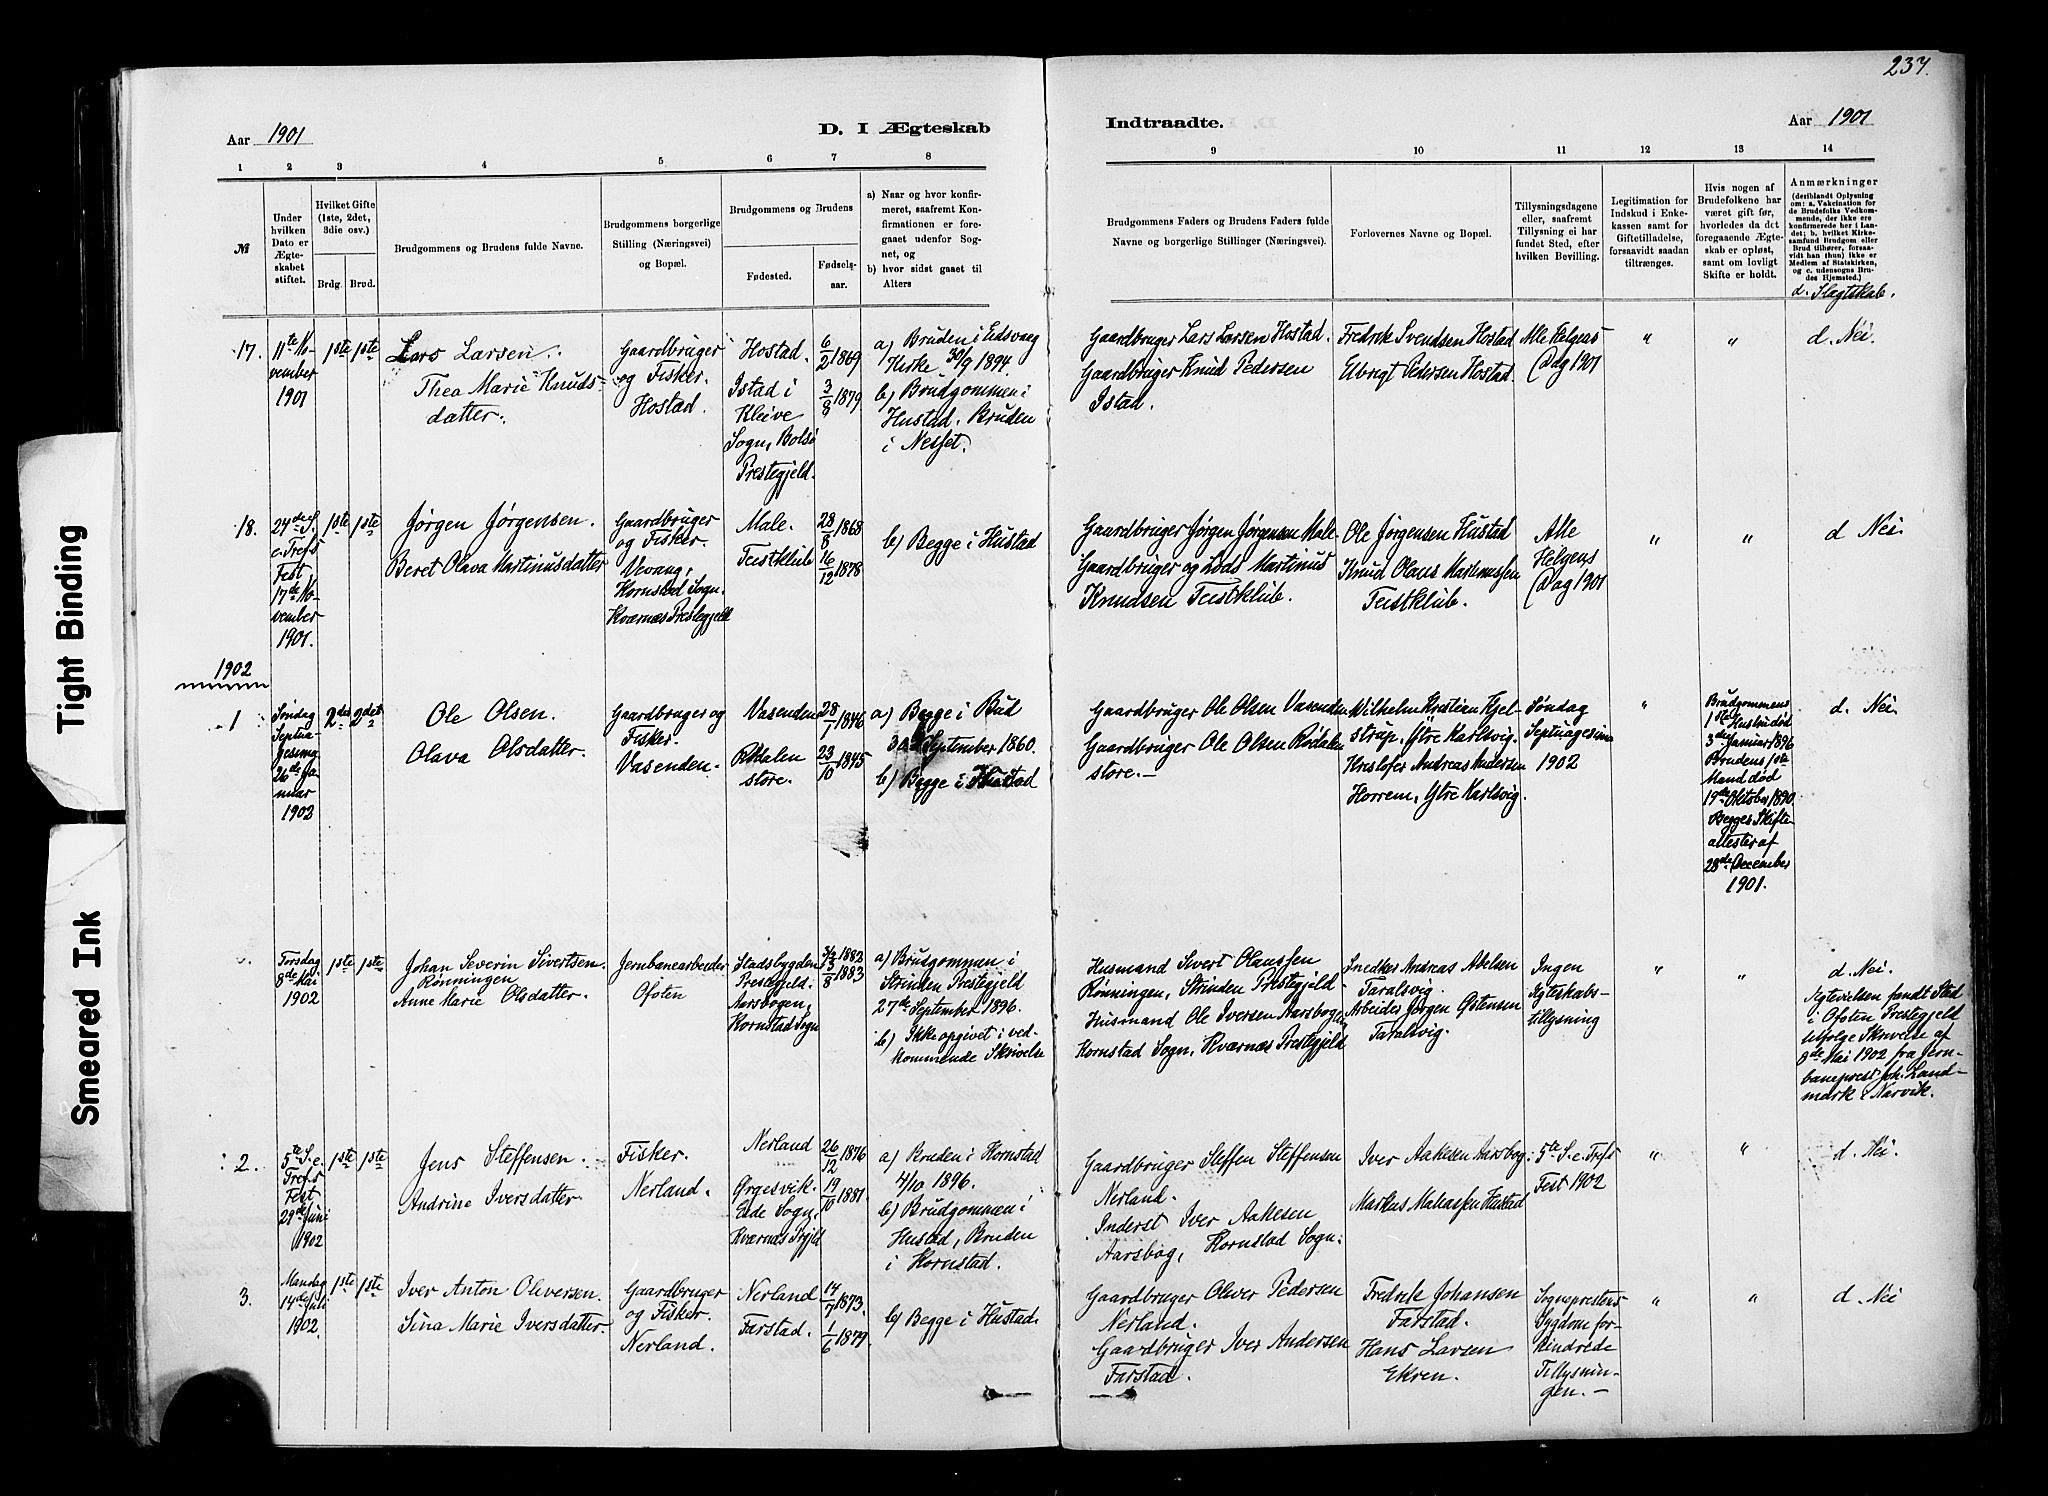 237.
Aar 1901
D. I Ægteskab
Indtraadte.
Aar 1901
1 2 3 4 5 6 7 8 9 10 11 12 13 14
№
Under
hvilken
Dato er
Ægte-
skabet
stiftet.
Hvilket Gifte
(1ste, 2det,
3die osv.)
Brdg. Brud.
Brudgommens og Brudens fulde Navne.
Brudgommens borgerlige
Stilling (Næringsvei)
og Bopæl.
Brudgommens og Brudens
Fødested.
Fødsels-
aar.
a) Naar og hvor konfir-
meret, saafremt Kon-
firmationen er fore-
gaaet udenfor Sog-
net, og
b) hvor sidst gaaet til
Alters
Brudgommens Faders og Brudens Faders fulde
Navne og borgerlige Stillinger (Næringsvei).
Forlovernes Navne og Bopæl.
Tillysningsdagene
eller, saafremt
Tillysning ei har
fundet Sted, efter
hvilken Bevilling.
Legitimation for
Indskud i Enke-
kassen samt for
Giftetilladelse,
forsaavidt saadan
tiltrænges.
Hvis nogen af
Brudefolkene har
været gift før,
hvorledes da det
foregaaende Ægte-
skab er opløst,
samt om lovligt
Skifte er holdt.
Anmærkninger
(deriblandt Oplysning
om: a. Vakcination for
de Brudefolks Vedkom-
mende, der ikke ere
konfirmerede her i Lan-
det; b. hvilket Kirke-
samfund Brudgom eller
Brud tilhører, forsaa-
vidt han (hun) ikke er
Medlem af Statskirken,
og c. udensogns Bru-
des Hjemsted.)
d. Slægtskab.
17.
11te No-
vember
1901
1ste 1ste
Lars Larsen.
Thea Marie Knuds-
datter.
Gaardbruger
og Fisker.
Hostad.
Hostad.
Istad i
Kleive
Sogn, Bolsø
Prestegjeld.
6/2 1869
3/8 1879
a) Bruden i Eidsvaag
Kirke 30/9 1894.
b) Brudgommen i
Hustad. Bruden
i Nesset.
Gaardbruger Lars Larsen Hostad.
Gaardbruger Knud Pedersen
Istad.
Fredrik Svendsen Hostad
Elbrigt Pedersen Hostad.
Alle Helgens
Dag 1901
" "
d. Nei.
18.
24de S.
e. Trefs
Fest
17de No-
vember
1901.
1ste 1ste
Jørgen Jørgensen.
Beret Olava Martinusdatter
Gaardbruger
og Fisker.
Vevang,
Kornstad Sogn.
Kværnæs Prestegjeld
Male.
Teistklub
28/8 1868
16/12 1878
b) Begge i Hustad
Gaardbruger Jørgen Jørgensen Male-
Gaardbruger og Lods Martinus
Knudsen Teistklub.
Ole Jørgensen Hustad
Knud Olaus Martinussen
Teistklub.
Alle
Helgens
Dag 1901
" "
d Nei.
1902
1
Søndag
Septua-
gesima
26de Ja-
nuar
1902
2det 2det
Ole Olsen.
Olava Olsdatter.
Gaardbruger og
Fisker.
Vasenden.
Vasenden
Rødalen
store.
28/1 1846
23/10 1845
a) Begge i Bud
30 September 1860.
b) Begge i Hustad
Gaardbruger Ole Olsen Vasenden
Gaardbruger Ole Olsen Rødalen
store.
Wilhelm Kristian Kjel-
strup, Ytre Karlsvig.
Kristofer Andreas Andersen
Horrem, Ytre Karlsvig.
Søndag
Septuagesima
1902
"
Brudgommens
1ste Hustru død
3de Januar 1896
Brudens 1ste
Mand død
19de Oktober 1890.
Begges Skifte-
attester af
28de December
1901.
d. Nei.
Torsdag
8de Mai
1902
1ste 1ste
Johan Severin Sivertsen
Rønningen
Anne Marie Olsdatter.
Jernbanearbeider
Ofoten
Stadsbygden
Prestegjeld.
Aarsbogen,
Kornstad Sogn
1882
1883
a) Brudgommen i
Strinden Prestegjeld
27de September 1896.
b) Ikke opgivet i ved-
kommende Skrivelse
Husmand Sivert Olaussen
Rønningen, Strinden Prestegjeld-
Husmand Ole Iversen Aarsbogen
Kornstad Sogn, Kværnæs Prestegjeld
Snedker Andreas Abelsen
Taralsvig.
Arbeider Jørgen Østensen
Taralsvig.
Ingen
Ægteskabs-
tillysning
" "
d. Nei.
Ægtevielsen fandt Sted
i Ofoten Prestegjeld
ifølge Skrivelse af
8de Mai 1902 fra Jern-
baneprest Joh. Land-
mark i Narvik.
2.
5te S. e.
Trefs
Fest
29de Juni
1902
1ste 1ste
Jens Steffensen.
Andrine Iversdatter.
Fisker.
Nerland.
Nerland
Ørgesvik.
Eide Sogn,
Kværnæs Prgjld
26/12 1876
19/10 1881.
a) Bruden i Kornstad
4/10 1896.
b) Brudgommen i
Hustad, Bruden
i Kornstad.
Gaardbruger Steffen Steffensen
Nerland.
Inderst Iver Aakesen
Aarsbog, Kornstad Sogn.
Iver Aakesen Aarsbog.
Markus Matiassen Hustad
5te S. e. Trefs
Fest 1902
" "
d. Nei.
3.
Mandag
14de Juli
1902.
1ste 1ste
Iver Anton Oliversen.
Sina Marie Iversdatter.
Gaardbruger
og Fisker.
Nerland.
Nerland
Farstad.
14/7 1873.
1/6 1879.
b) Begge i Hustad.
Gaardbruger Oliver Pedersen
Nerland.
Gaardbruger Iver Andersen
Farstad.
Fredrik Johansen
Farstad.
Hans Larsen
Ekren.
Sogneprestens
Sygdom for-
hindrede
Tillysnin-
gen.
" "
d. Nei
Tight Binding
Smeared Ink